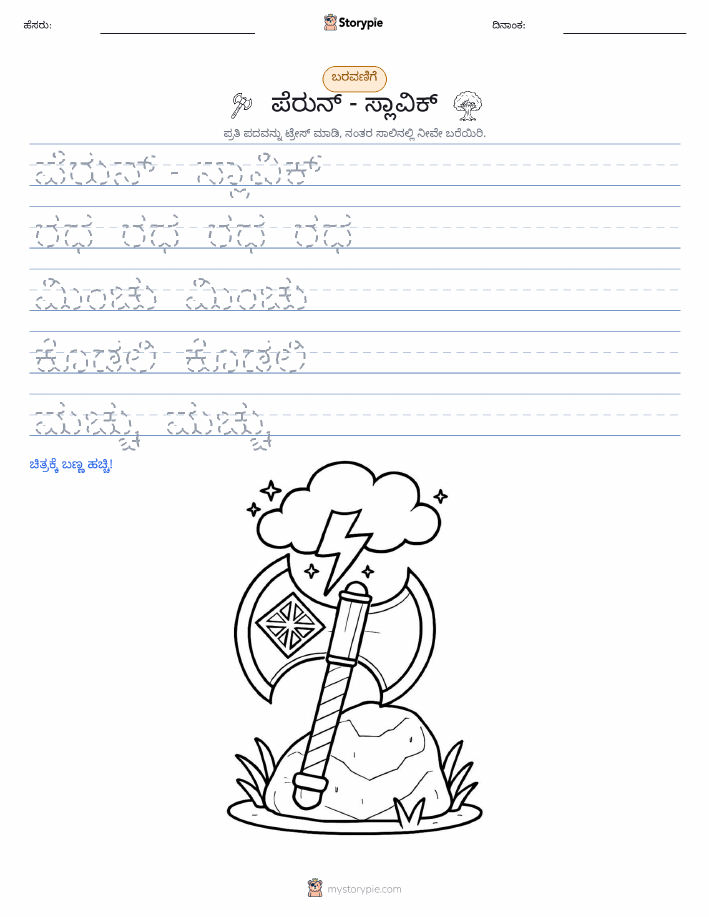 ಹೆಸರು:
Storypie
ದಿನಾಂಕ:
ಬರವಣಿಗೆ
ಪೆರುನ್ - ಸ್ಲಾವಿಕ್
ಪ್ರತಿ ಪದವನ್ನು ಟ್ರೇಸ್ ಮಾಡಿ, ನಂತರ ಸಾಲಿನಲ್ಲಿ ನೀವೇ ಬರೆಯಿರಿ.
ಪೆರುನ್ - ಸ್ಲಾವಿಕ್
ರಥ ರಥ ರಥ ರಥ
ಮಿಂಚು ಮಿಂಚು
ಕೊಡಲಿ ಕೊಡಲಿ
ಮಚ್ಚು ಮಚ್ಚು
ಚಿತ್ರಕ್ಕೆ ಬಣ್ಣ ಹಚ್ಚಿ!
mystorypie.com